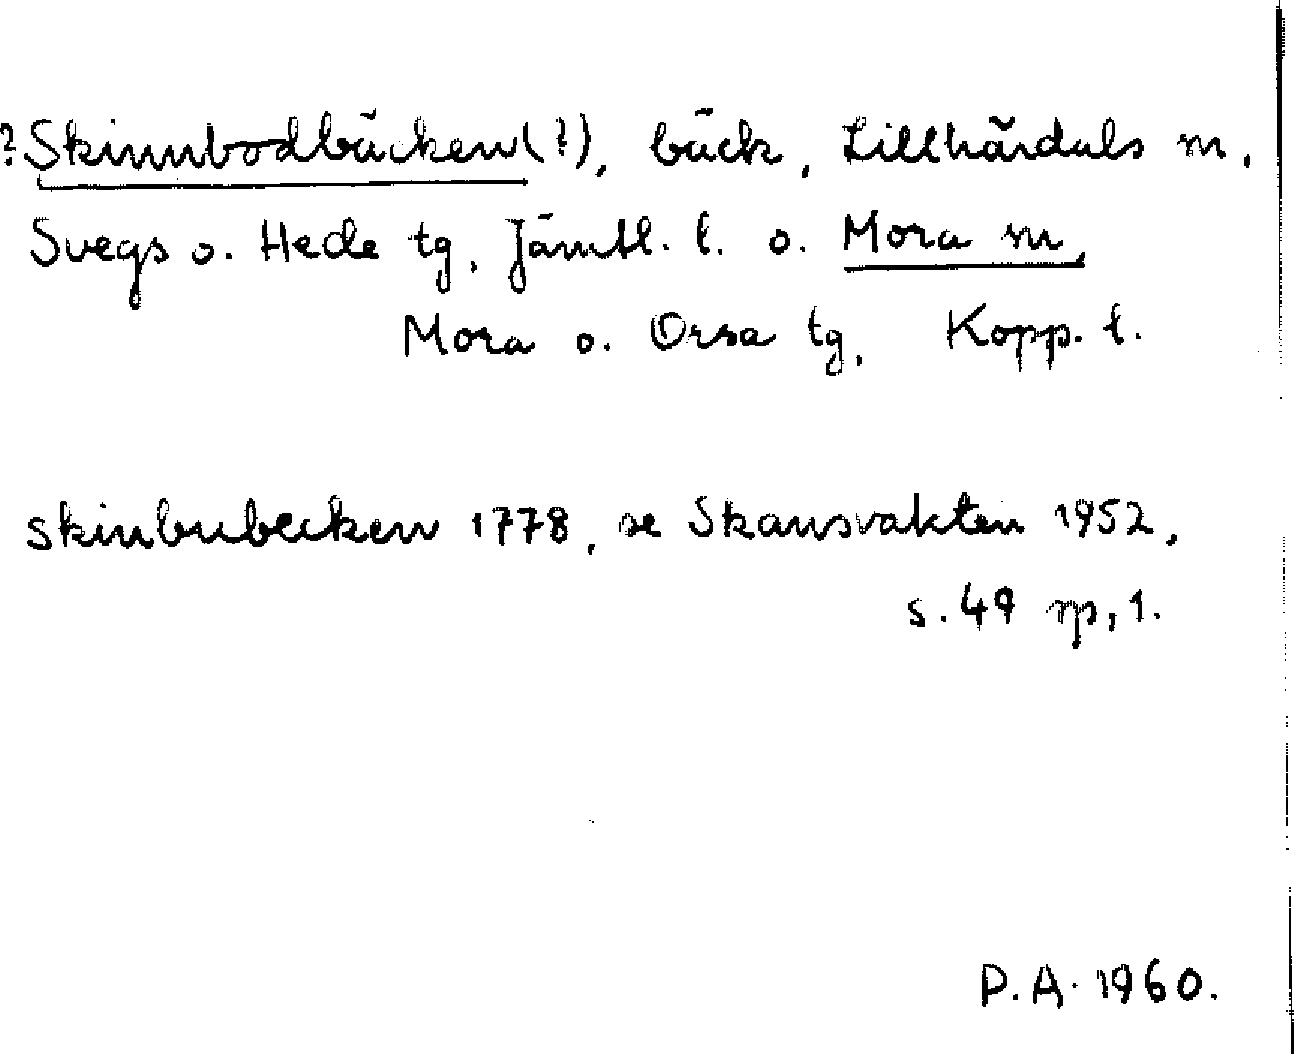 ?Skinnbodbäcken(?), bäck, Lillhärdals m,
Svegs o. Hede tg, Jämtl. l. o. Mora m,
Mora o. Orsa tg, Kopp. l.
skinbubecken 1778, se Skansvakten 1952,
s. 49 sp, 1.
P.A. 1960.